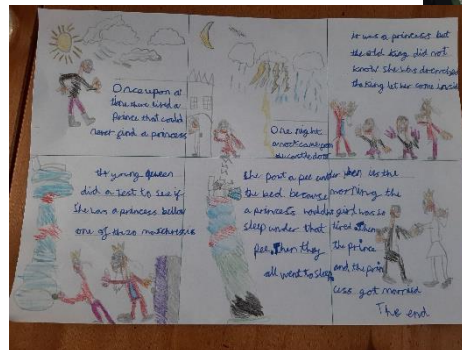 Once upon a
time there lived a
Prince that could
never find a princess
One night
a nock came upon
the castle door
It was a princess but
the old king did not
know she was
the king let her come inside
the young queen
did a test to see if
She was a princess bellow
one of the 20 matchresses
She port a pee under
the bed. because
a princess would
sleep under that
pee. then they
all went to sleep
when it was the
morning the
girl was so
tired. then
the prince
and, the prin
cess got married
The end